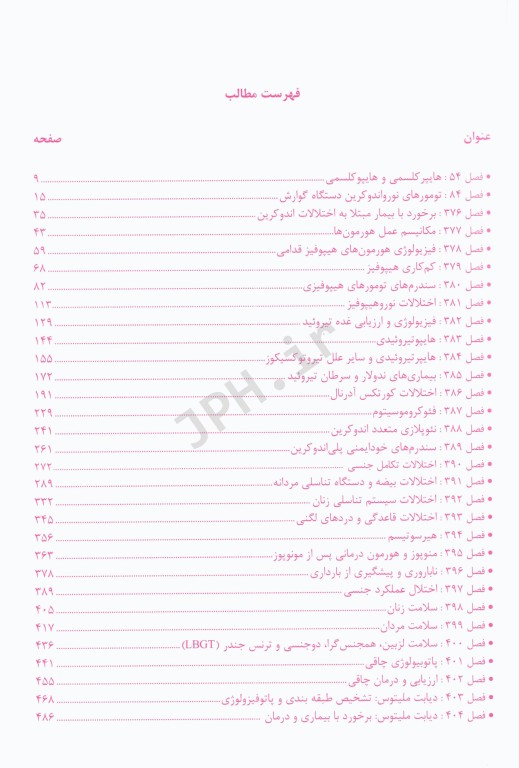 فهرست مطالب
عنوان صفحه
• فصل ۵۴ : هایپرکلسمی و هایپوکلسمی ۹
• فصل ۸۴ : تومورهای نورواندوکرین دستگاه گوارش ۱۵
• فصل ۳۷۶ : برخورد با بیمار مبتلا به اختلالات اندوکرین ۳۵
• فصل ۳۷۷ : مکانیسم عمل هورمون‌ها ۴۳
• فصل ۳۷۸ : فیزیولوژی هورمون‌های هیپوفیز قدامی ۵۹
• فصل ۳۷۹ : کم‌کاری هیپوفیز ۶۸
• فصل ۳۸۰ : سندرم‌های تومورهای هیپوفیزی ۸۲
• فصل ۳۸۱ : اختلالات نوروهیپوفیز ۱۱۳
• فصل ۳۸۲ : فیزیولوژی و ارزیابی غده تیروئید ۱۲۹
• فصل ۳۸۳ : هایپوتیروئیدی ۱۴۴
• فصل ۳۸۴ : هایپرتیروئیدی و سایر علل تیروتوکسیکوز ۱۵۵
• فصل ۳۸۵ : بیماری‌های ندولار و سرطان تیروئید ۱۷۲
• فصل ۳۸۶ : اختلالات کورتکس آدرنال ۱۹۱
• فصل ۳۸۷ : فئوکروموسیتوم ۲۲۹
• فصل ۳۸۸ : نئوپلازی متعدد اندوکرین ۲۴۱
• فصل ۳۸۹ : سندرم‌های خودایمنی پلی‌اندوکرین ۲۶۱
• فصل ۳۹۰ : اختلالات تکامل جنسی ۲۷۲
• فصل ۳۹۱ : اختلالات بیضه و دستگاه تناسلی مردانه ۲۸۹
• فصل ۳۹۲ : اختلالات سیستم تناسلی زنان ۳۳۲
• فصل ۳۹۳ : اختلالات قاعدگی و دردهای لگنی ۳۴۵
• فصل ۳۹۴ : هیرسوتیسم ۳۵۶
• فصل ۳۹۵ : منوپوز و هورمون درمانی پس از مونوپوز ۳۶۳
• فصل ۳۹۶ : ناباروری و پیشگیری از بارداری ۳۷۸
• فصل ۳۹۷ : اختلال عملکرد جنسی ۳۸۹
• فصل ۳۹۸ : سلامت زنان ۴۰۵
• فصل ۳۹۹ : سلامت مردان ۴۱۷
• فصل ۴۰۰ : سلامت لزبین، همجنس‌گرا، دوجنسی و ترنس جندر (LBGT) ۴۳۶
• فصل ۴۰۱ : پاتوبیولوژی چاقی ۴۴۱
• فصل ۴۰۲ : ارزیابی و درمان چاقی ۴۵۵
• فصل ۴۰۳ : دیابت ملیتوس: تشخیص طبقه بندی و پاتوفیزولوژی ۴۶۸
• فصل ۴۰۴ : دیابت ملیتوس: برخورد با بیماری و درمان ۴۸۶
JPH.ir